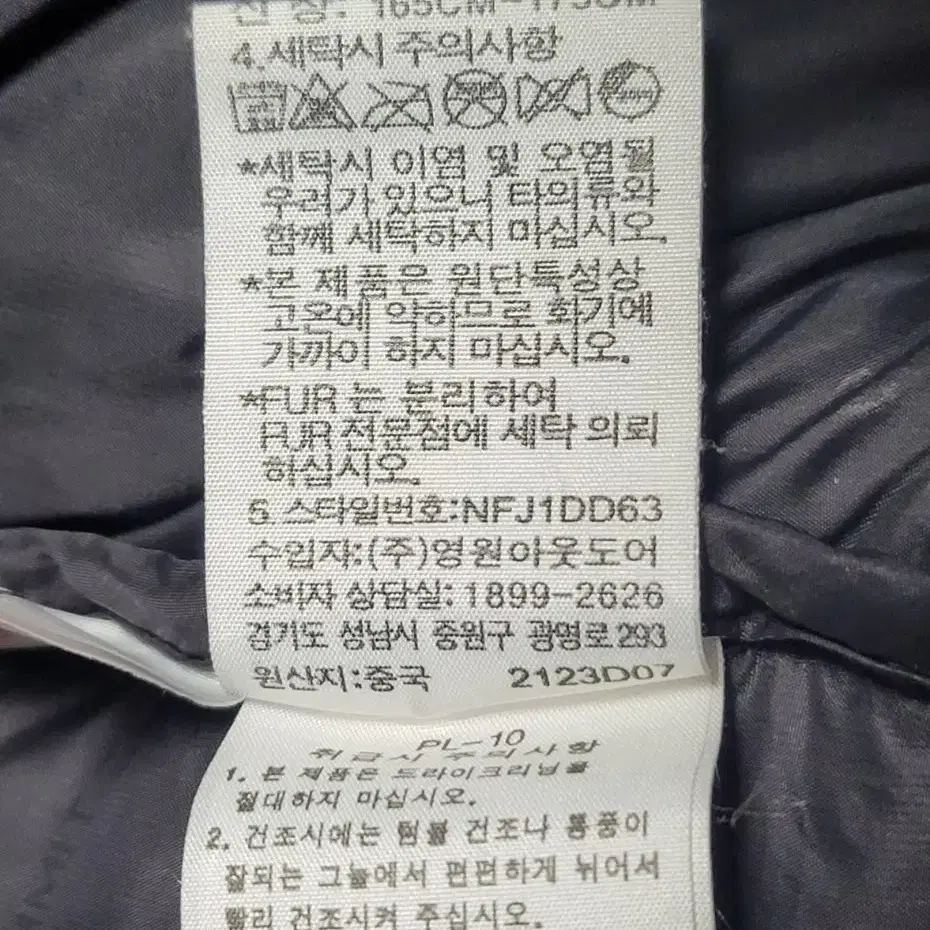 신 장: 165CM-175CM
4.세탁시 주의사항
*세탁시 이염 및 오염될
우려가 있으니 타의류와
함께 세탁하지 마십시오.
*본 제품은 원단특성상
고온에 약하므로 화기에
가까이 하지 마십시오.
*FUR 는 분리하여
FUR 전문점에 세탁 의뢰
하십시오.
5.스타일번호:NFJ1DD63
수입자:(주)영원아웃도어
소비자 상담실: 1899-2626
경기도 성남시 중원구 광명로 293
원산지:중국 2123D07
PL-10
취급시 주의사항
1. 본 제품은 드라이크리닝을
절대하지 마십시오.
2. 건조시에는 텀블 건조나 통풍이
잘되는 그늘에서 편편하게 뉘어서
빨리 건조시켜 주십시오.